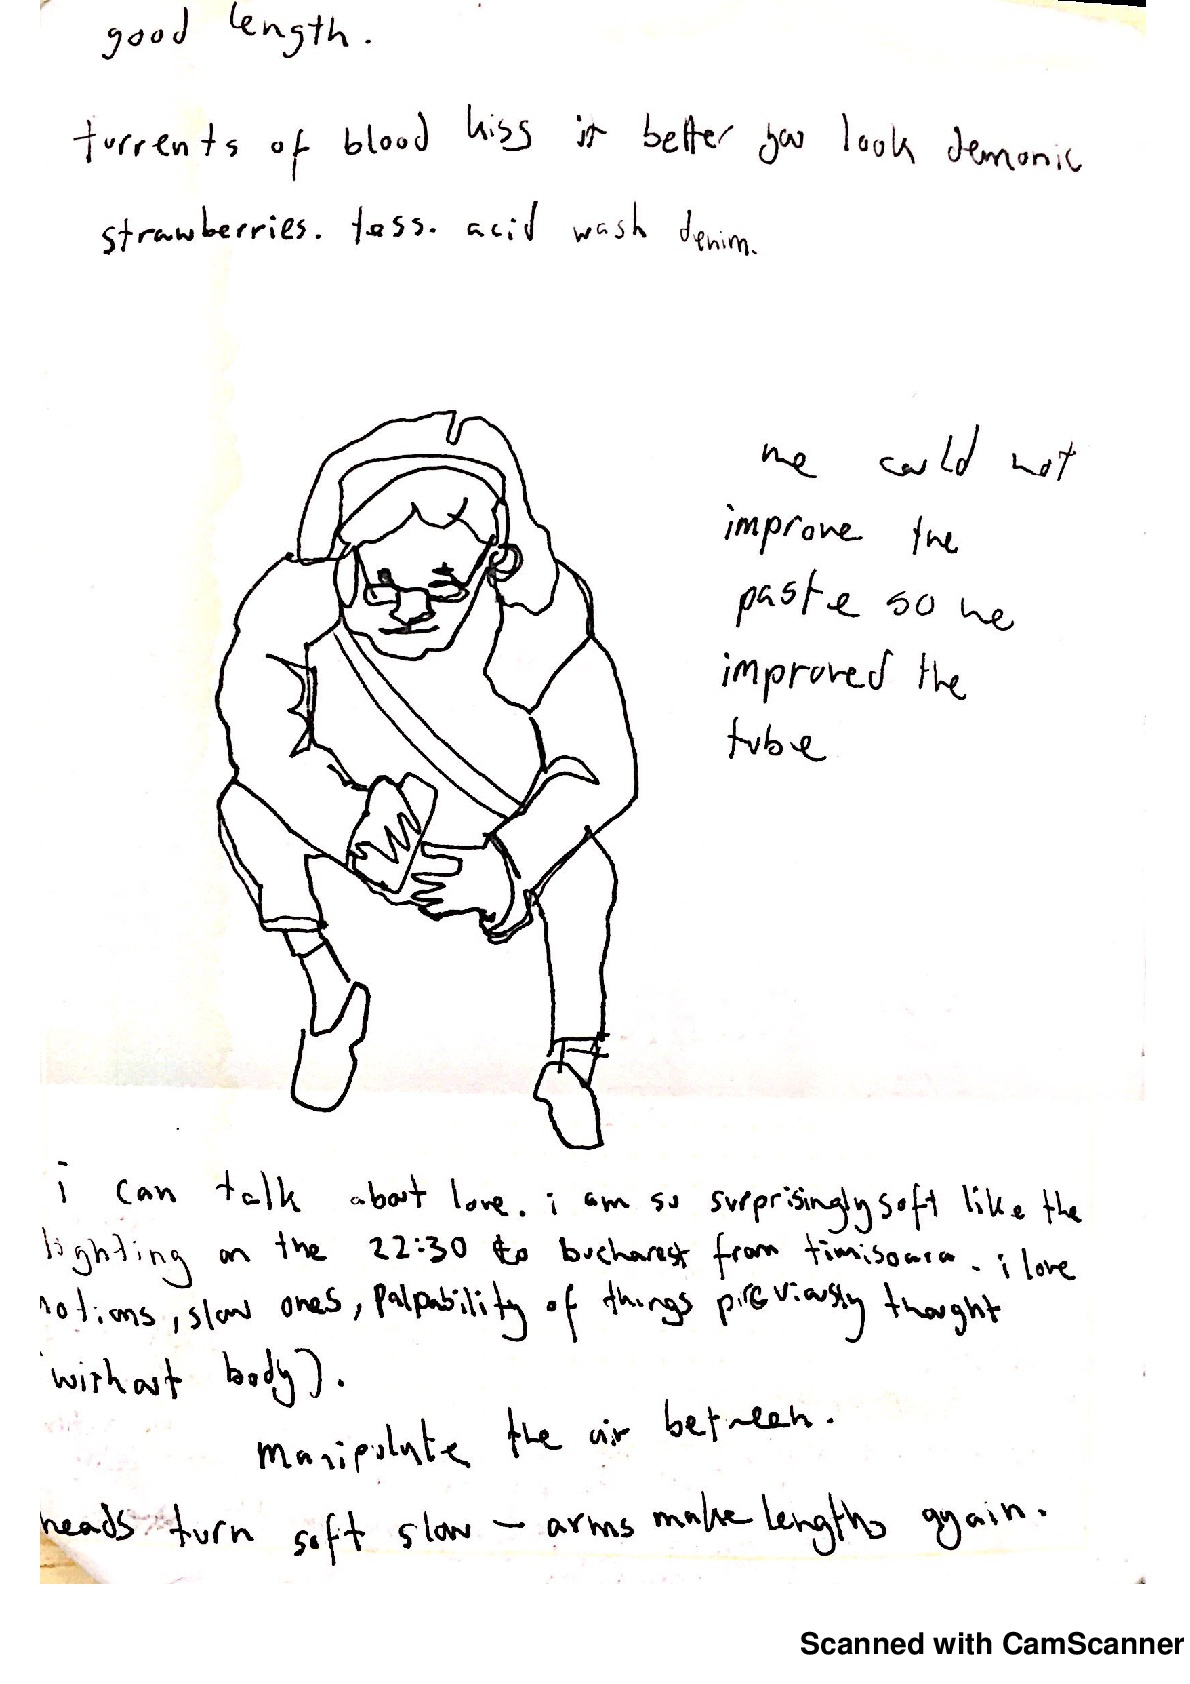 good length.
turrents of blood kiss it better you look demonic
strawberries. toss. acid wash denim.
we could not
improve the
paste so we
improved the
tube
i can talk about love. i am so surprisingly soft like the
lighting on the 22:30 to bucharest from timisoara. i love
notions, slow ones, palpability of things previously thought
without body).
manipulate the air between.
heads turn soft slow – arms make lengths again.
Scanned with CamScanner